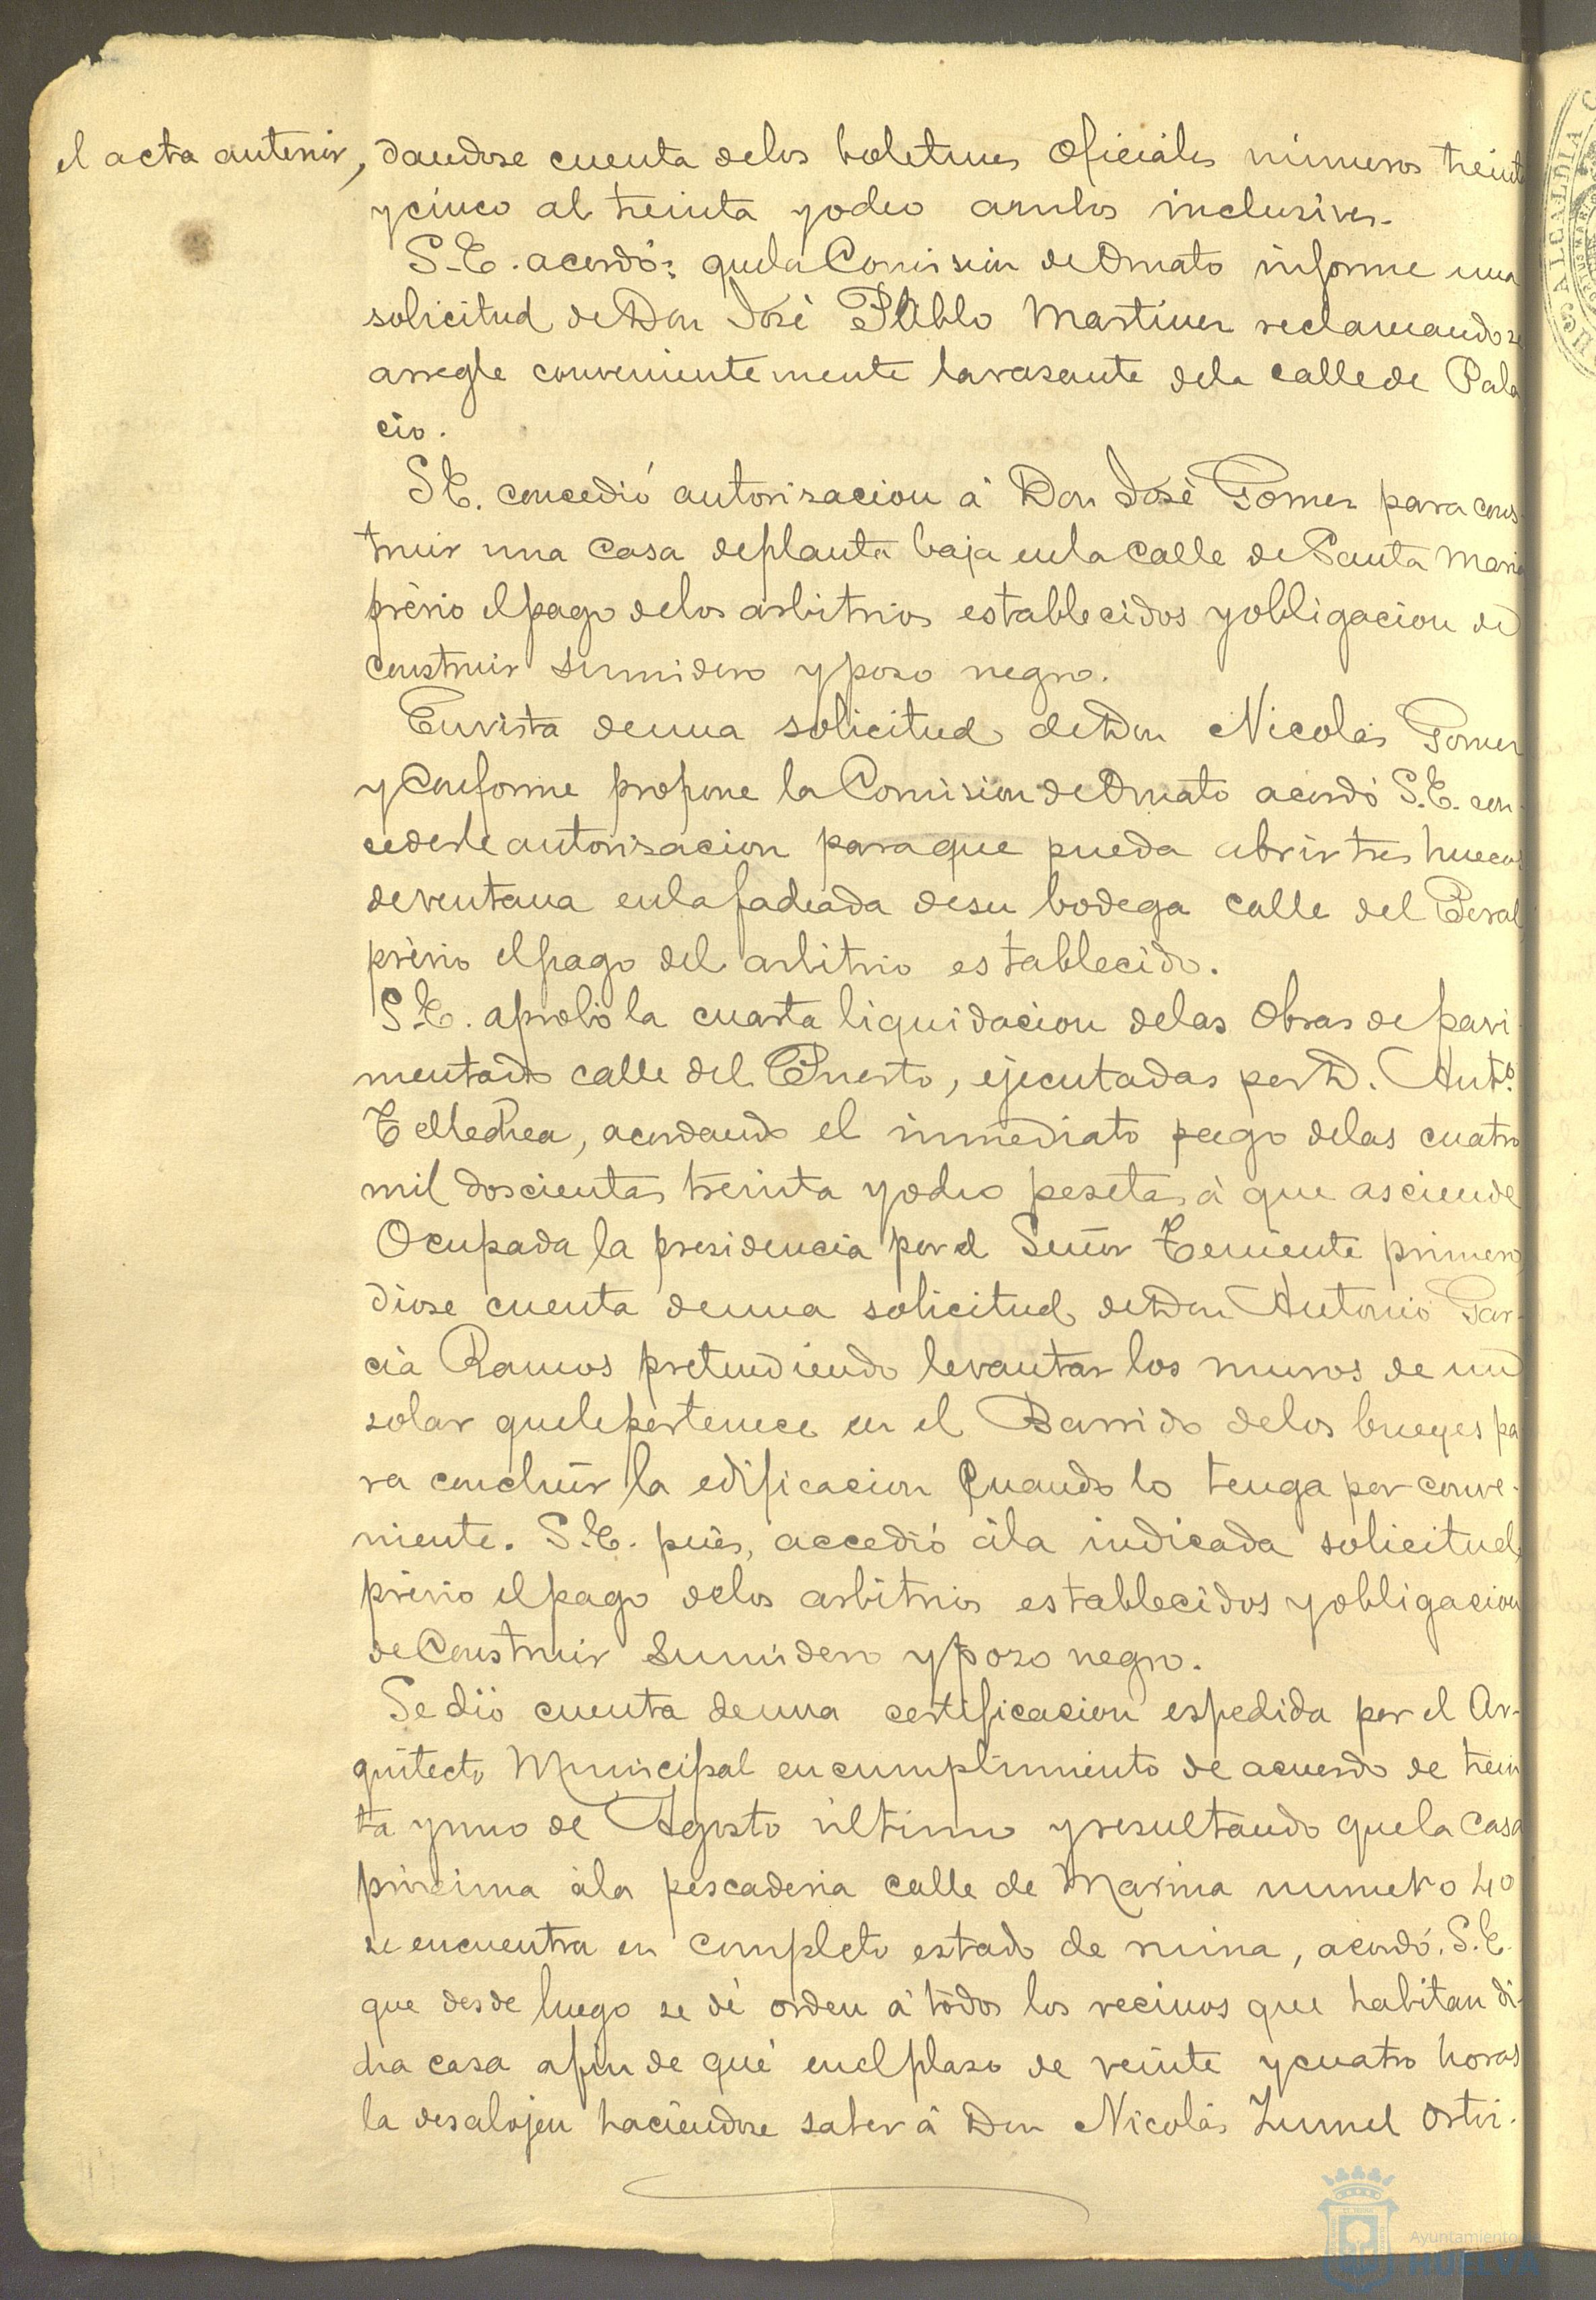 el acta anterior, dandose cuenta delos boletines Oficiales números treinta
ycinco al treinta yocho ambos inclusives.
S.E. acordó: quela Comision deOrnato informe una
solicitud deDon José Pablo Martinez reclamando se
arregle convenientemente larasante dela callede Pala
cio.
S.E. concedió autorisacion á Don José Gomez para cons
truir una Casa deplanta baja enla Calle de Santa Maria
prévio elpago delos arbitrios establecidos yobligacion de
construir sumidero yposo negro.
Envista deuna solicitud deDon Nicolás Gomez
yConforme propone laComision deOrnato acordó S.E. con-
cederle autorisacion paraque pueda abrir tres huecos
deventana enlafachada desu bodega calle del Peral
prévio elpago del arbitrio establecido.
S.E. aprobó la cuarta liquidacion delas Obras de pavi
mentado calle del Puerto, ejecutadas porD. Antº.
Tellechea, acordando el inmediato pago delas cuatro
mil doscientas treinta yocho pesetas á que asciende
Ocupada la presidencia porel Señor Teniente primero
dióse cuenta deuna solicitud deDon Antonio Gar-
cia Ramos pretendiendo levantar los muros de un
solar quelepertenece en el Barrido delos bueyes pa
ra concluir la edificacion Cuando lo tenga por conve-
niente. S.E. pués, accedió ála indicada solicitud
prévio elpago delos arbitrios establecidos yobligacion
deConstruir Sumidero ypozo negro.
Se dió cuenta deuna certificacion espedida por el Ar-
quitecto Municipal encumplimiento de acuerdo de trein
ta yuno de Agosto último yresultando quela Casa
próxima ála pescaderia calle de Marina numero 40
se encuentra en completo estado de ruina, acordó S.E.
que desde luego se dé orden á tódos los vecinos que habitan di-
cha casa afin de qué enelplaso de veinte ycuatro horas
la desalojen haciéndose saber á Don Nicolás Zumel Orti-
Ayuntamiento de
HUELVA